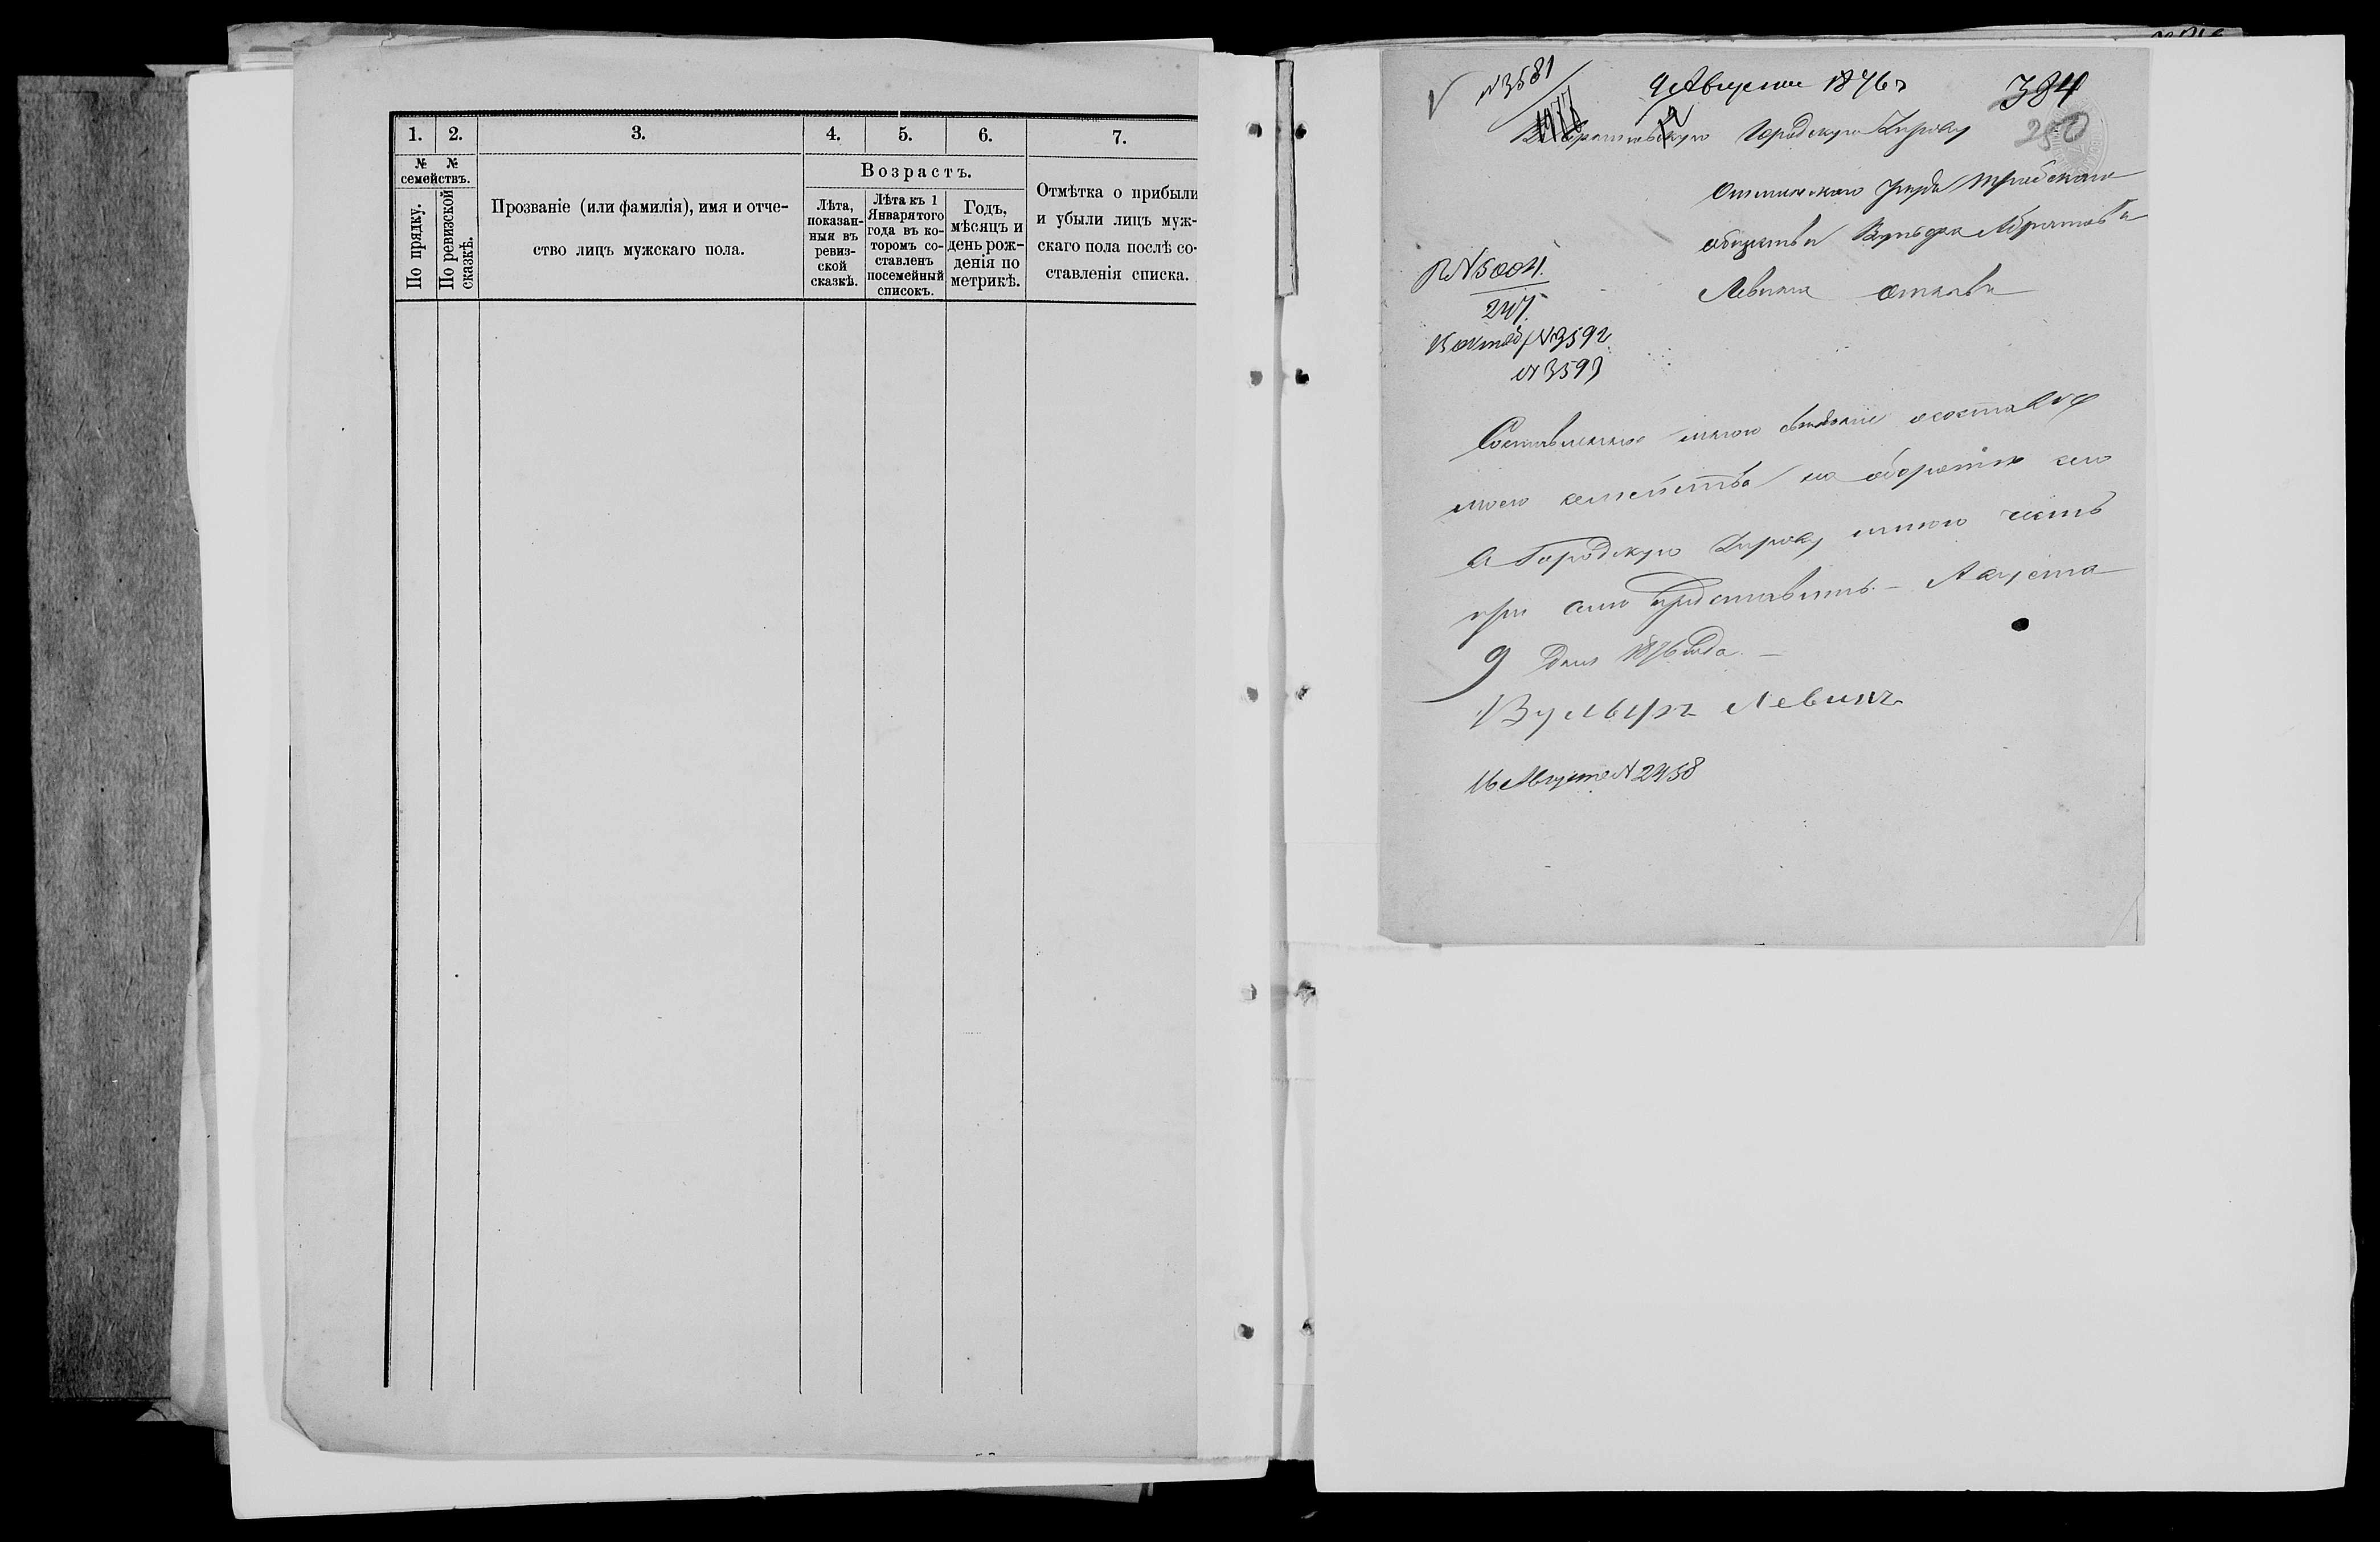 1. 2. 3. 4. 5. 6. 7.
№ №
семействъ.
По прядку.
По ревизской сказкѣ.
Прозваніе (или фамилія), имя и отче-
ство лицъ мужскаго пола.
Возрастъ.
Лѣта,
показан-
ныя въ
ревиз-
ской
сказкѣ.
Лѣта къ 1
Января того
года въ ко-
торомъ со-
ставленъ
посемейный
списокъ.
Годъ,
мѣсяцъ и
день рож-
денія по
метрикѣ.
Отмѣтка о прибыли
и убыли лицъ муж-
скаго пола послѣ со-
ставленія списка.
№3581
9 Августа 1876
384
250
Городскую Управу
уѣзда
общества Вульфа Абрамова
Левина
№5004.
247.
№3592
№3593
Составленное мною о составѣ
моего семейства на оборотѣ сего
въ Городскую Управу имѣю честь
при семъ представить. – Августа
9 дня 1876 года. –
Вульфъ Левинъ
16 Августа №2458